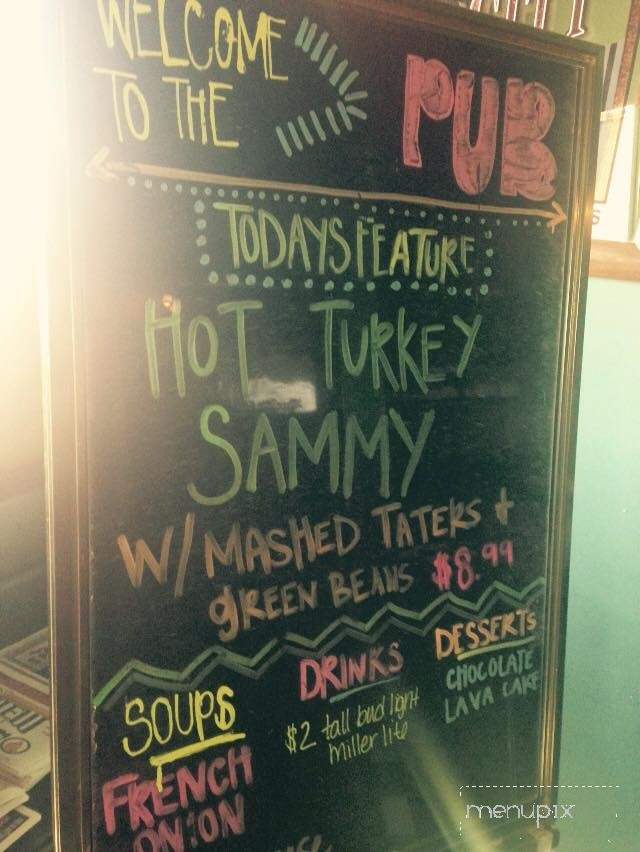 WELCOME
TO THE
PUB
TODAYS FEATURE
HOT TURKEY
SAMMY
W/ MASHED TATERS +
GREEN BEANS $8.99
SOUPS
FRENCH
ONION
DRINKS
$2 tall bud light
miller lite
DESSERTS
CHOCOLATE
LAVA CAKE
menupix